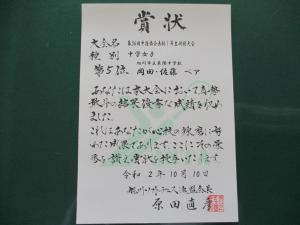 賞状
大会名
種別 中学女子
旭川市立
中学校
第5位 岡田・佐藤 ペア
あなたは本大会において真摯
敢斗の結果優秀な成績を収め
ました
これはあなたが心技の錬磨に努
めた成果であります ここに その栄
誉を讃え賞状を授与いたします
令和 2年10月10日
旭川ソフトテニス連盟会長
原田直彦